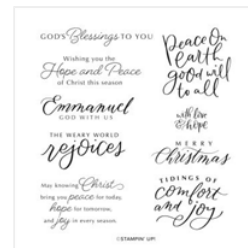 GOD'S Blessings TO YOU
Wishing you the
Hope and Peace
of Christ this season
Emmanuel
GOD WITH US
THE WEARY WORLD
rejoices
May knowing Christ
bring you peace for today,
hope for tomorrow,
and joy in every season.
Peace On
earth
good will
to all
with love
& hope
MERRY
Christmas
TIDINGS OF
comfort
and joy
©STAMPIN' UP!